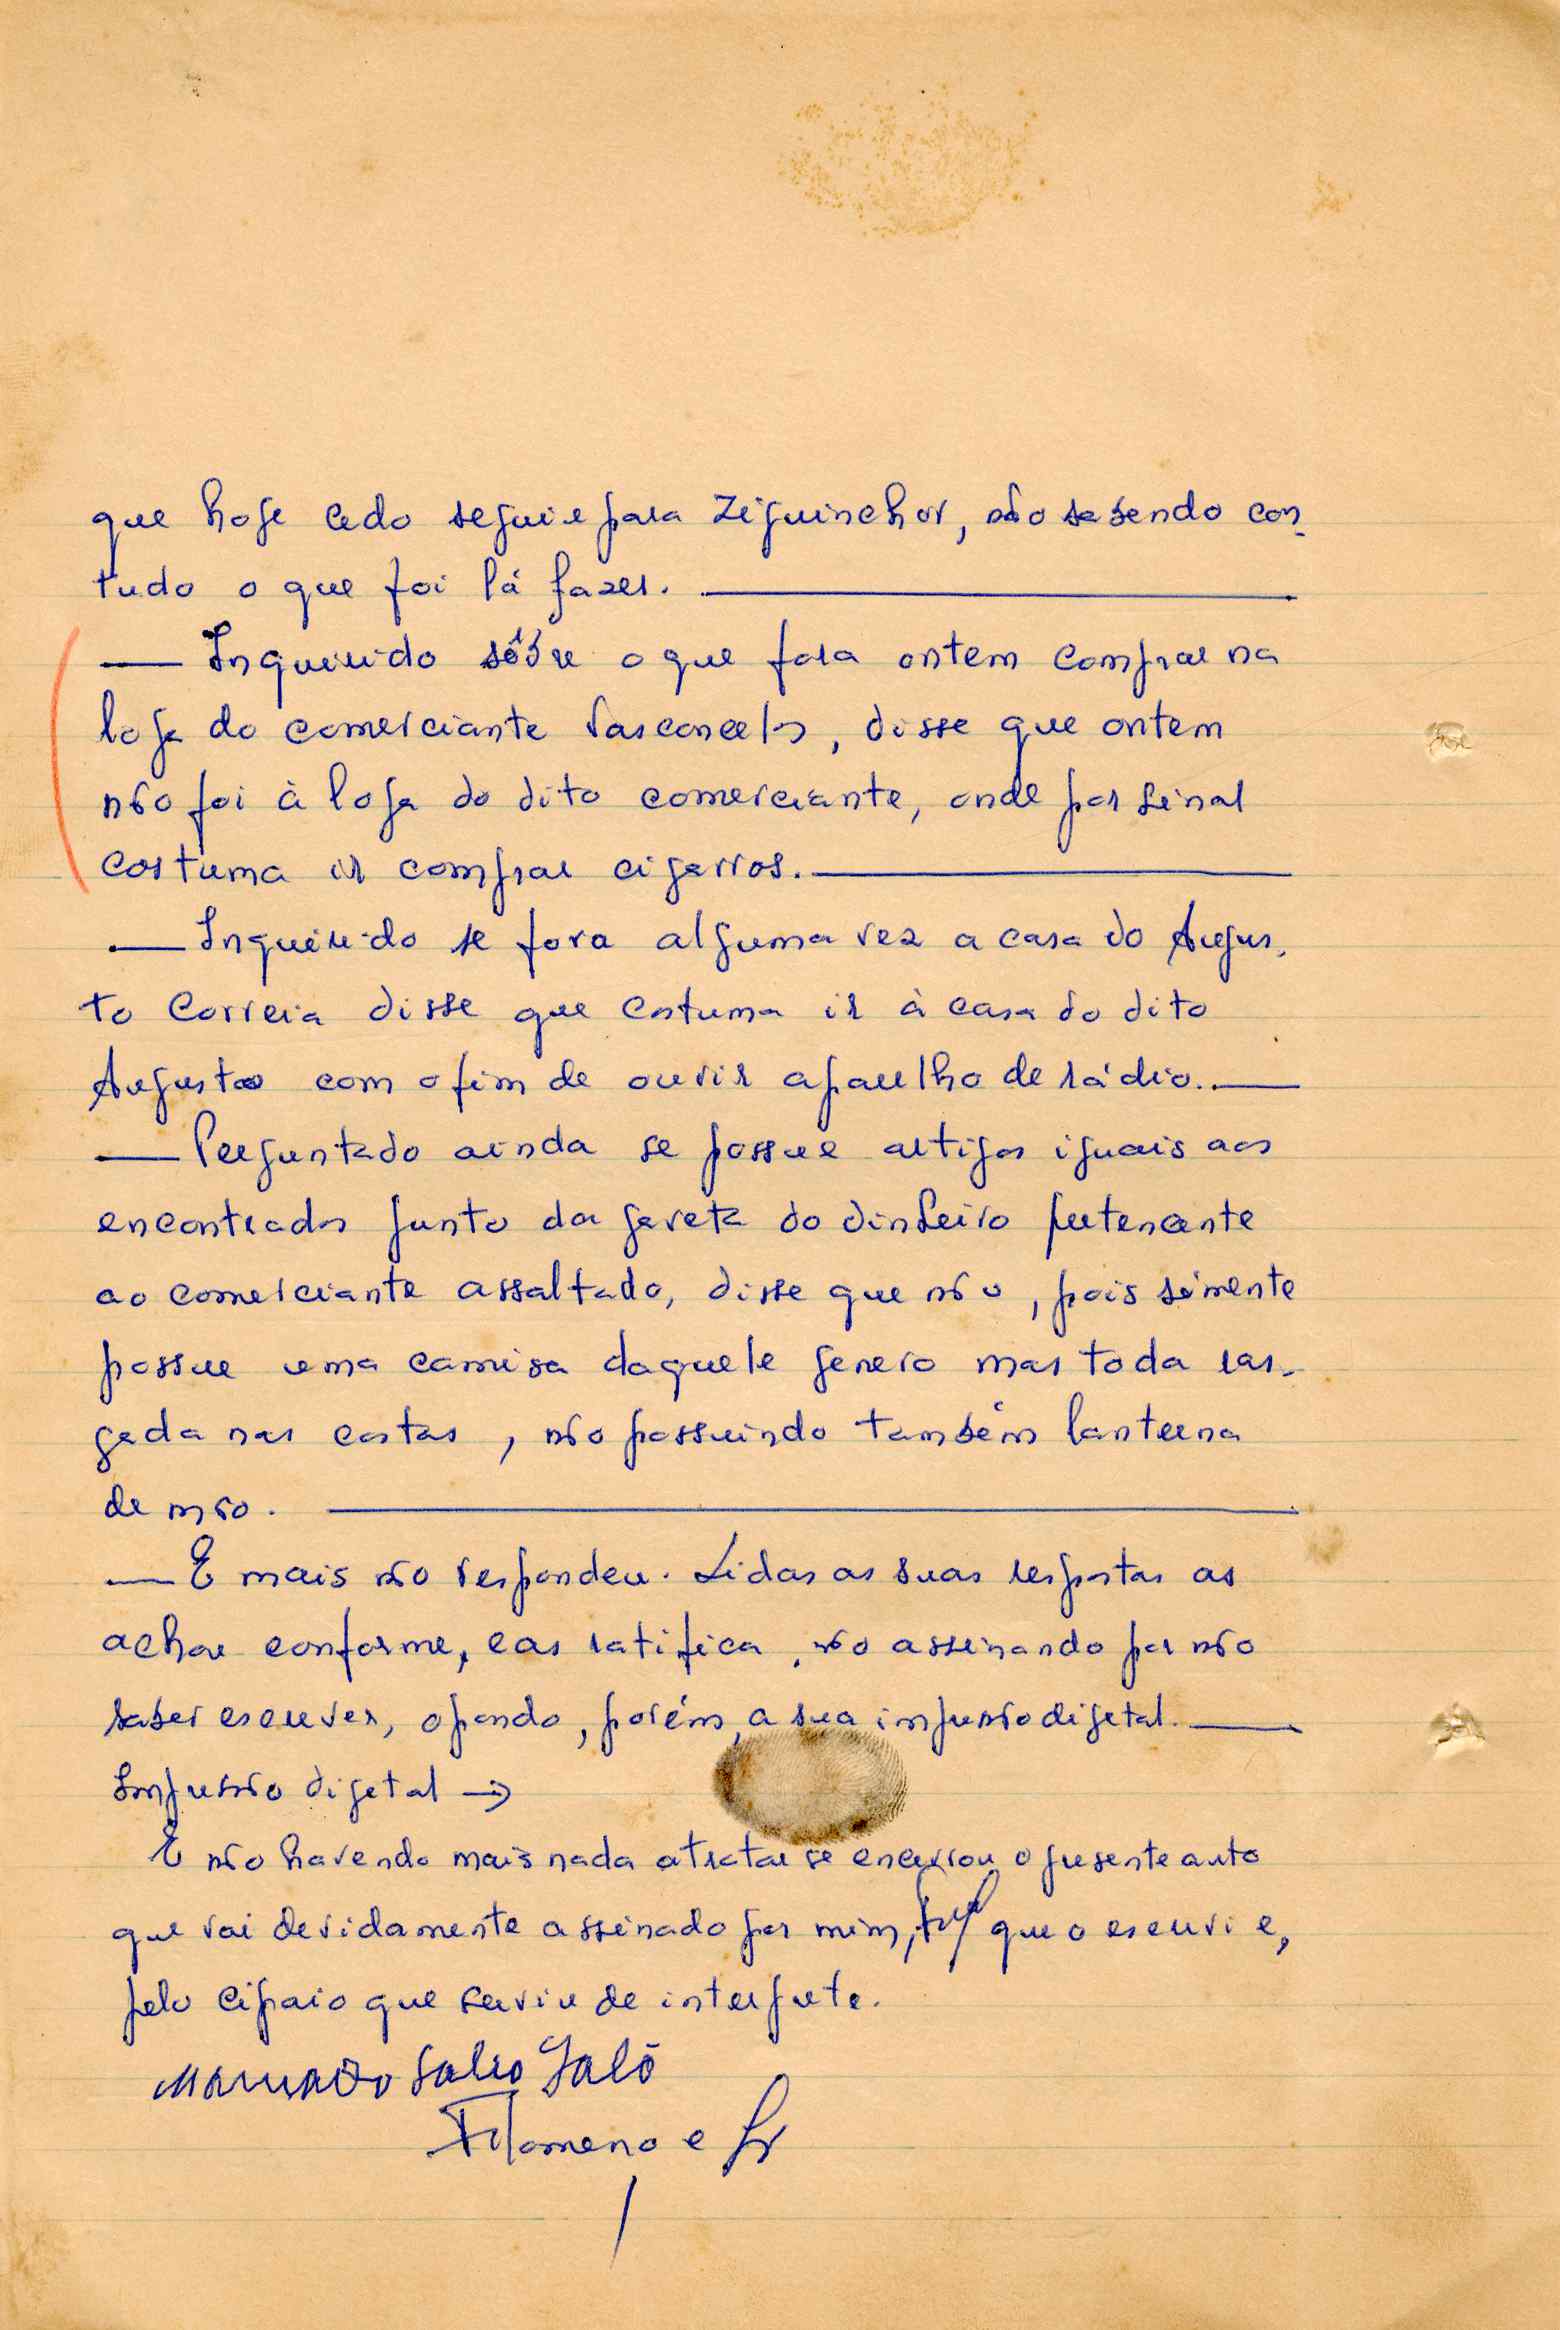 que hoje cedo seguiu para Ziguinchor, não sabendo con-
tudo o que foi lá fazer.
— Inquirido sôbre o que fora ontem comprar na
loja do comerciante Vasconcelos, disse que ontem
não foi à loja do dito comerciante, onde por sinal
costuma ir comprar cigarros.
— Inquirido se fora alguma vez a casa do Augus-
to Correia disse que costuma ir à casa do dito
Augusto com o fim de ouvir aparelho de rádio.
— Perguntado ainda se possue artigos iguais aos
encontrados junto da gaveta do dinheiro pertencente
ao comerciante assaltado, disse que não, pois sómente
possue uma camisa daquele genero mas toda ras-
gada nas costas, não possuindo também lanterna
de mão.
— E mais não respondeu. Lidas as suas respostas as
achou conforme, e as ratifica, não assinando por não
saber escrever, opondo, porém, a sua impressão digetal.
Impressão digetal →
E não havendo mais nada a tratar se encerrou o presente auto
que vai devidamente assinado por mim, que o escrevi e,
pelo cipaio que serviu de interprete.
Galé
Filomeno e